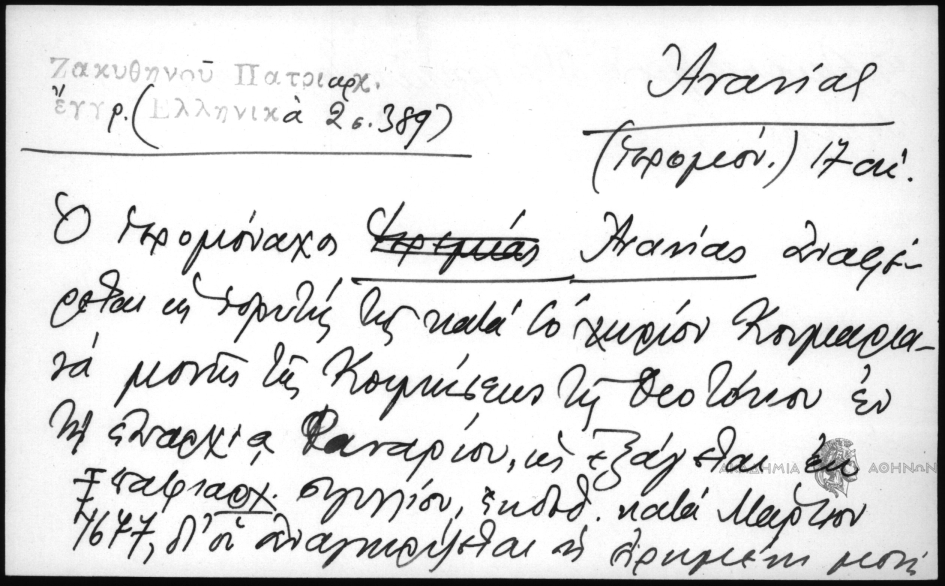 Ζακυθηνοῦ Πατριαρχ.
ἔγγρ. (Ἑλληνικὰ 2 σ. 389)
Ἀνανίας
(ἱερομόν.) 17 αἰ.
Ὁ ἱερομόναχος Ἱερεμίας Ἀνανίας ἀναφέ-
ρεται ὡς ἱδρυτής τῆς κατά τό χωρίον Κουμαρια-
νά μονῆς τῆς Κοιμήσεως τῆς Θεοτόκου ἐν
τῇ ἐπαρχίᾳ Φαναρίου, ὡς ἐξάγεται ἐκ
Πατριαρχ. σιγιλλίου, ἐκδοθ. κατά Μάρτιον
1677, δι' οὗ ἀναγνωρίζεται ἡ εἰρημένη μονή
ΑΚΑΔΗΜΙΑ ΑΘΗΝΩΝ